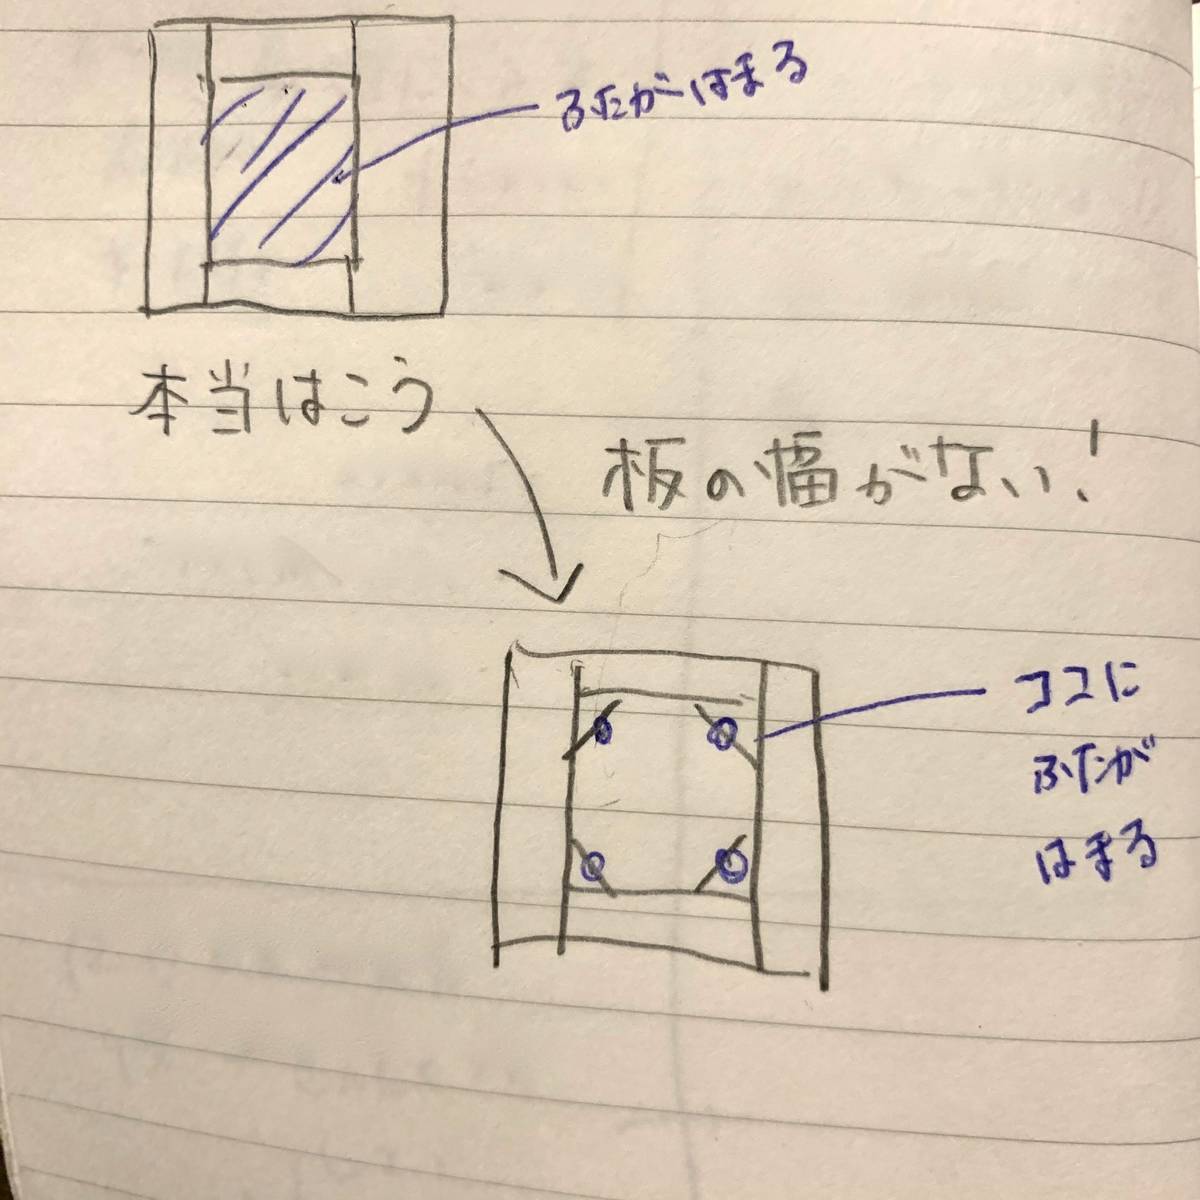 ふたがはまる
本当はこう
板の幅がない!
ココに
ふたが
はまる